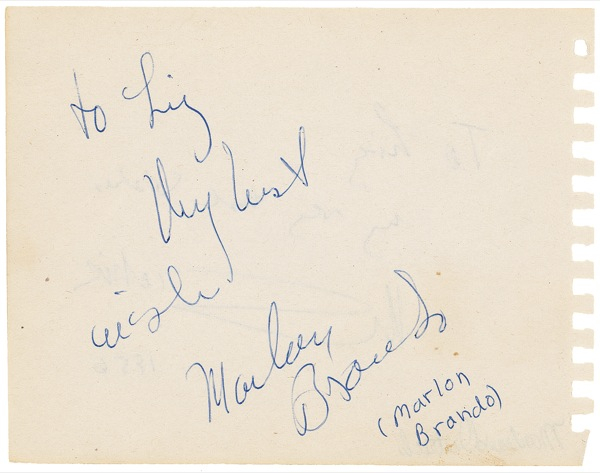 To Liz
Very best
wishes
Marlon
Brando
(Marlon
Brando)